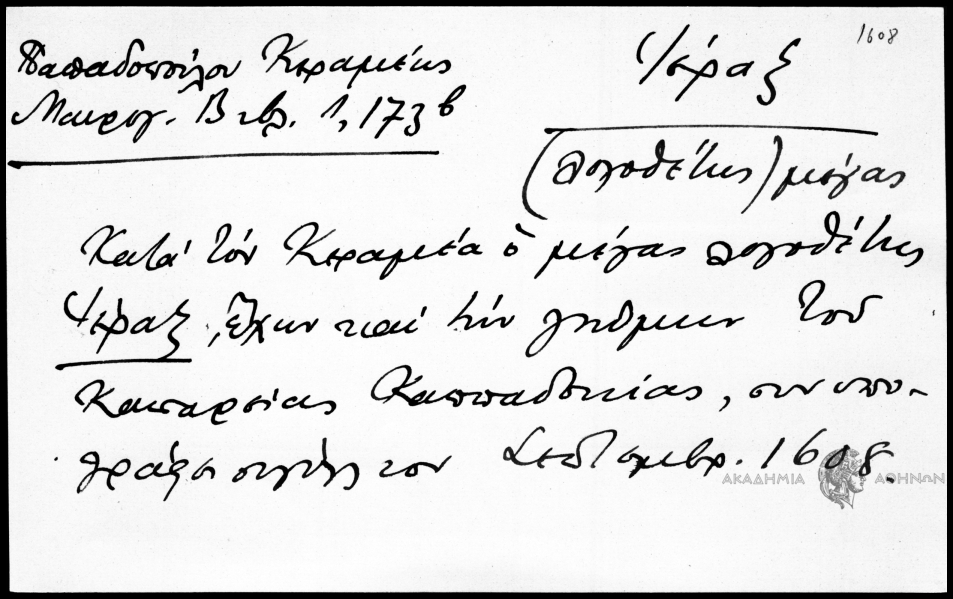 1608
Παπαδοπούλου Κεραμέως
Μαυρογ. Βιβλ. 1, 173β
Ἱέραξ
(λογοθέτης) μέγας
Κατά τόν Κεραμέα ὁ μέγας λογοθέτης
Ἱέραξ, ἔχων καί τήν τοῦ
Καισαρείας Καππαδοκίας, συνυπο-
γράφει σιγίλλιον Σεπτεμβρ. 1608.
ΑΚΑΔΗΜΙΑ ΑΘΗΝΩΝ